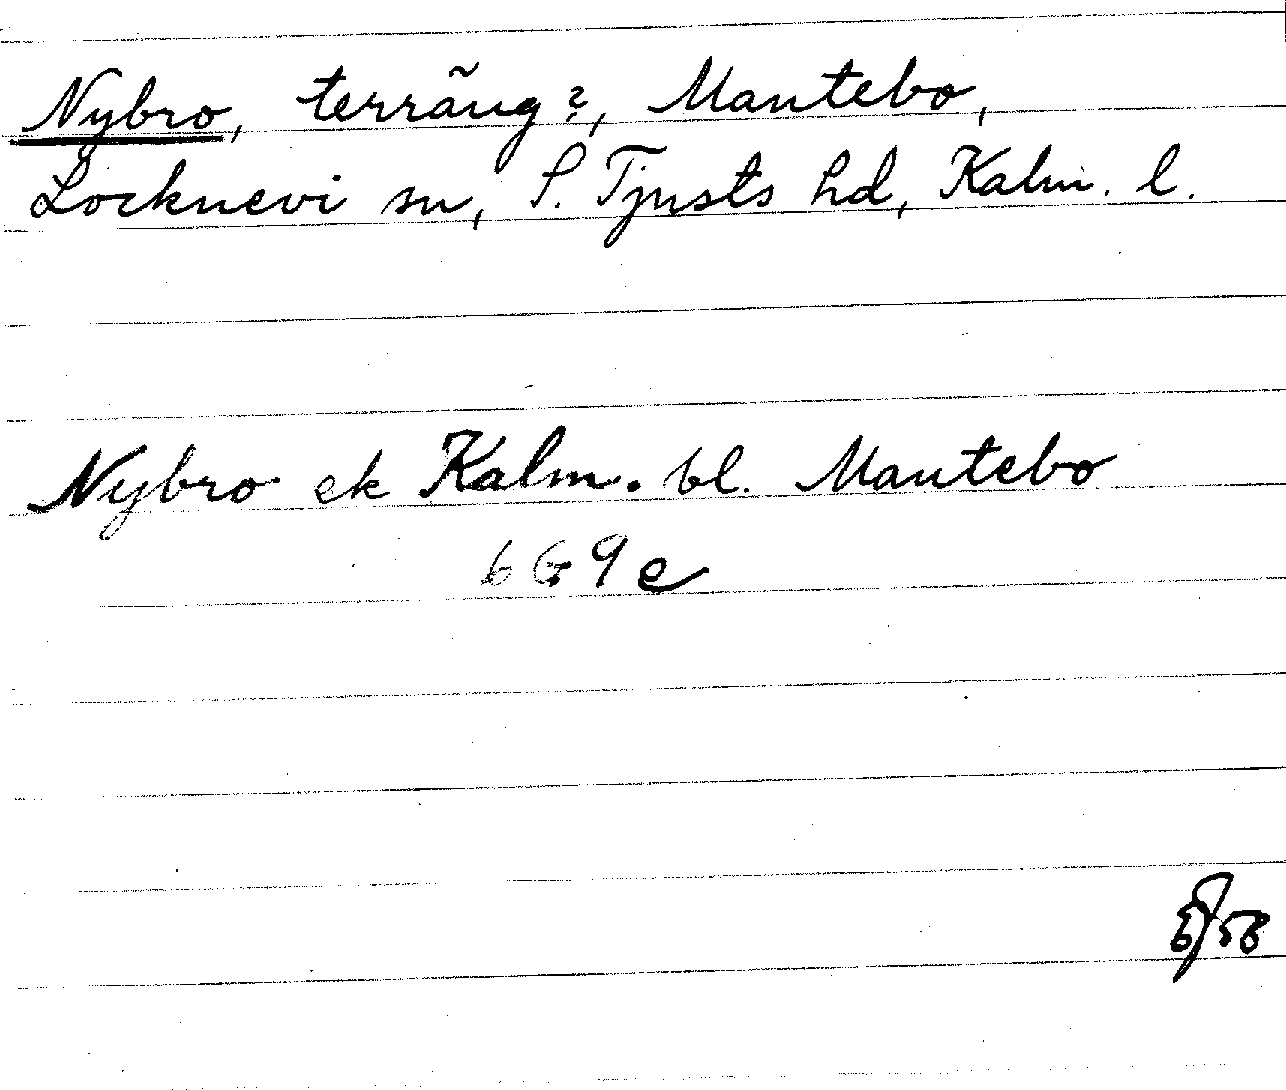 Nybro, terräng?, Mantebo,
Locknevi sn, S. Tjusts hd, Kalm. l.
Nybro ek Kalm. bl. Mantebo
6 G 9 e